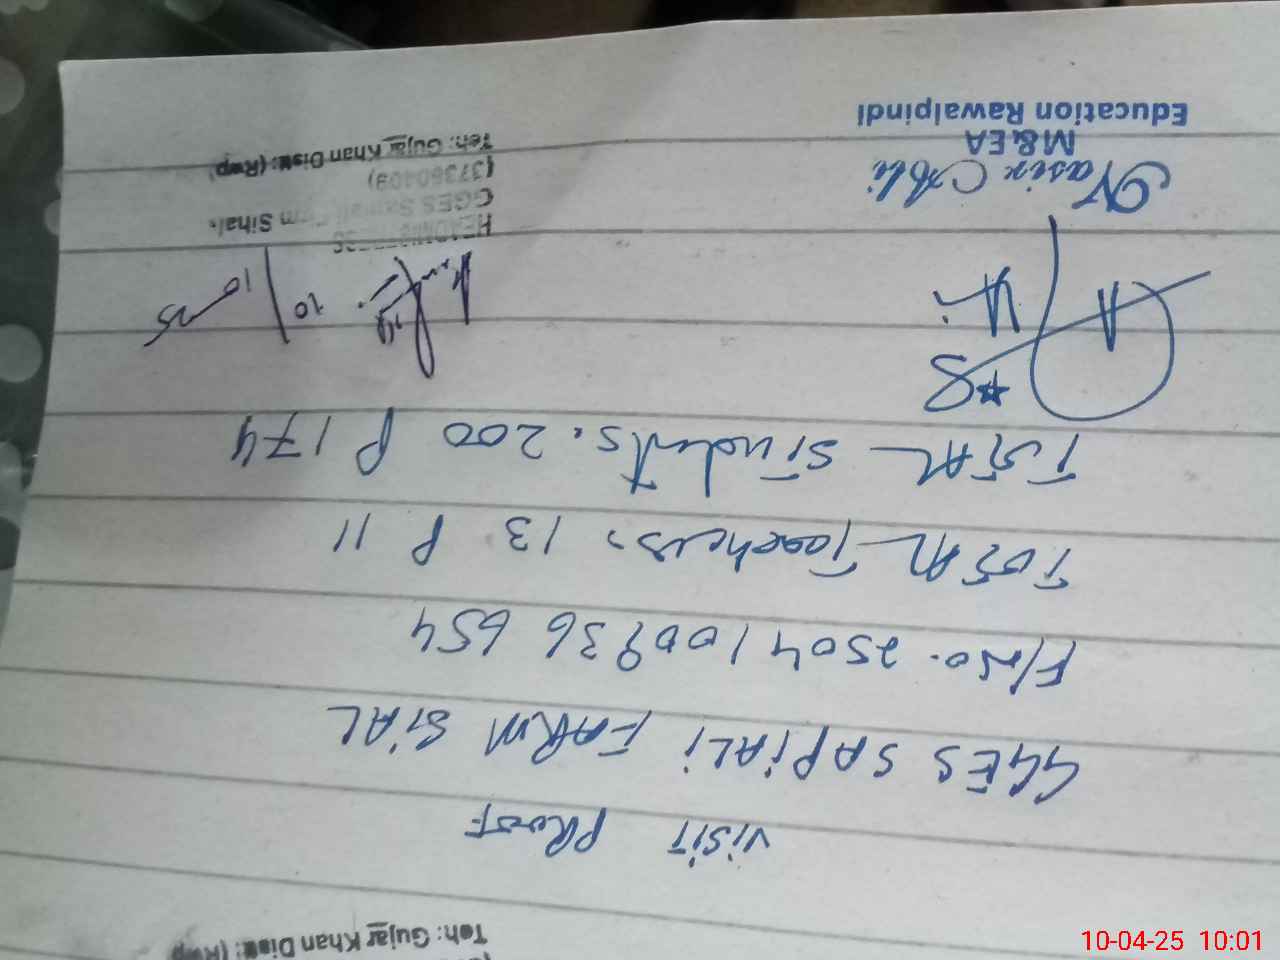 Teh: Gujar Khan Distt: (Rwp
VISIT PROOF
GGES SAPIALI FARM SIAL
F/No. 2504100936654
TOTAL Teachers. 13 P 11
TOTAL Students. 200 P 174
10/10 25
Nasir Ali
M&EA
Education Rawalpindi
HEADMISTRESS
GGES Sapiali Farm Sihal.
(37350409)
Teh: Gujar Khan Distt: (Rwp)
10-04-25 10:01